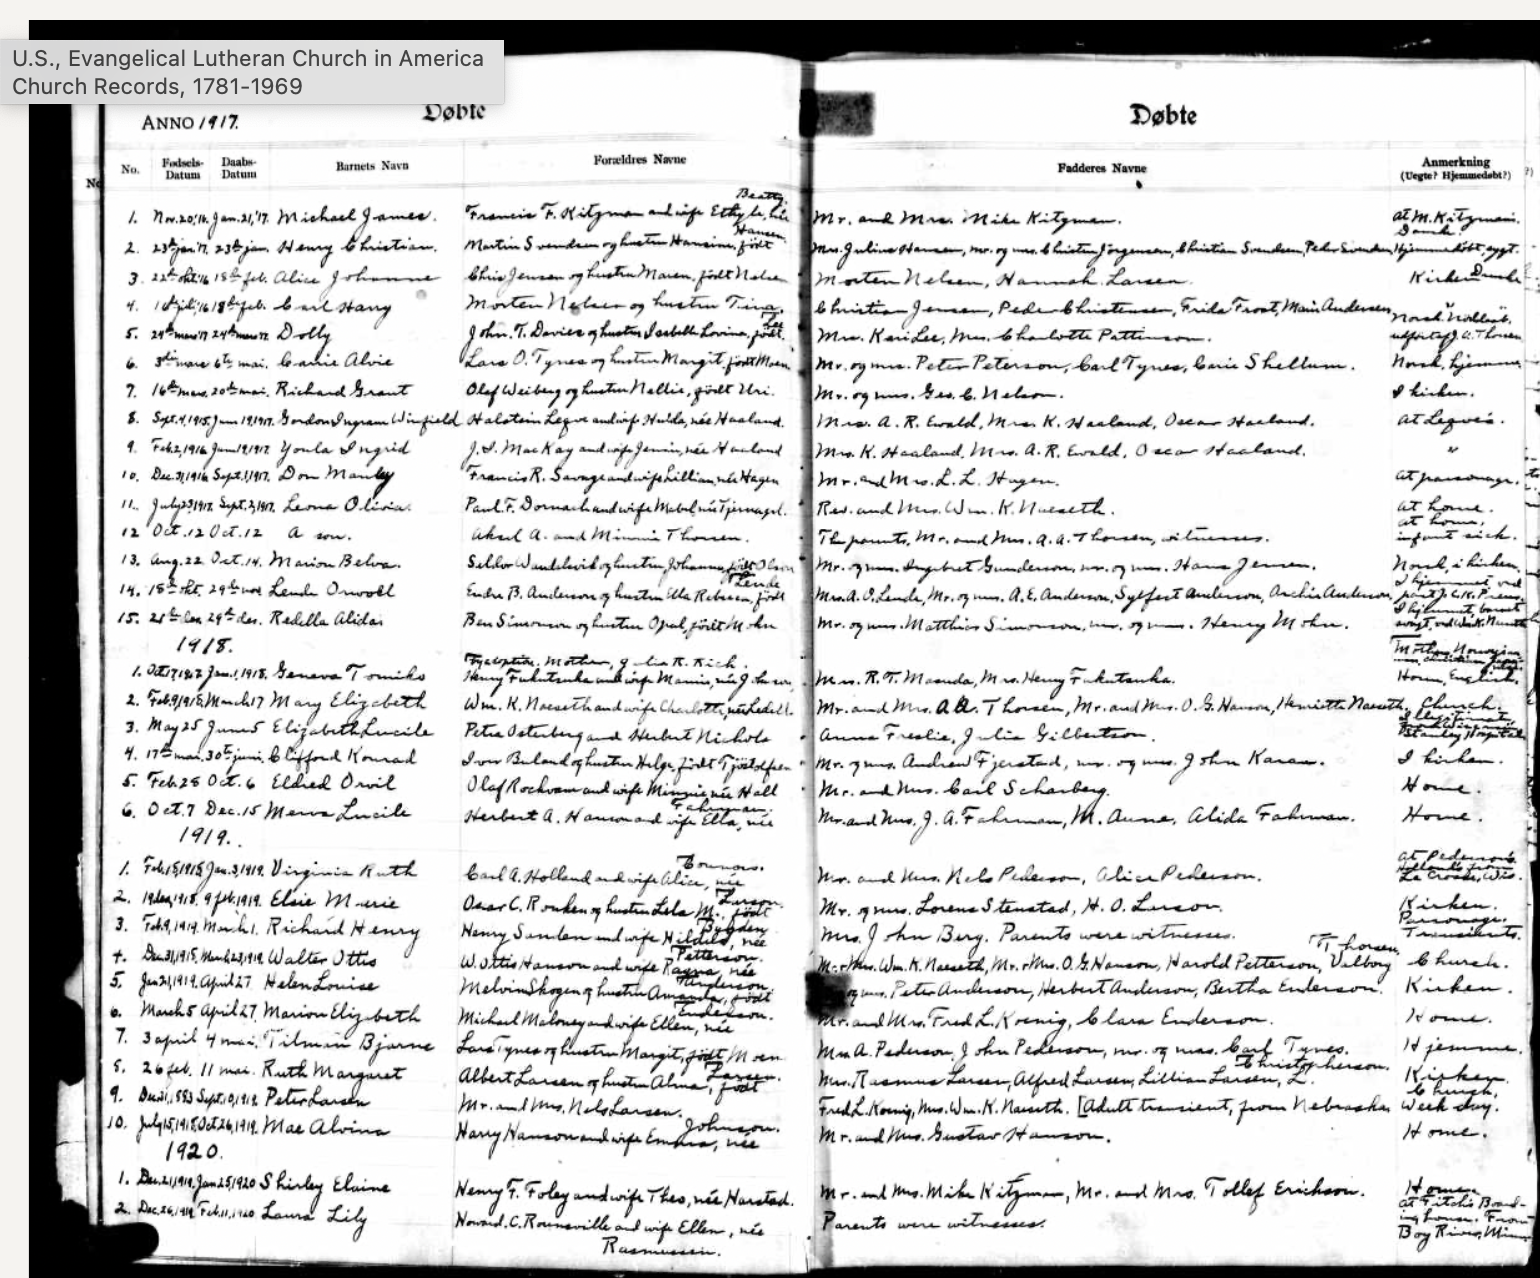 U.S., Evangelical Lutheran Church in America
Church Records, 1781-1969
ANNO 1917. Døbte Døbte
No. Fødsels-Datum Daabs-Datum Barnets Navn Forældres Navne Fadderes Navne Anmerkning (Uegte? Hjemmedøbt?)
Beatty.
1. Nov. 20,'16. Jan. 21,'17. Michael James. Francis F. Kitzman and wife Ethyle, née Mr. and Mrs. Mike Kitzman. at M. Kitzman's.
Hansen. Dansk
2. 23de jan. 17. 23de jan. Henry Christian. Martin Svendsen og hustru Hansine, født Mrs. Julius Hansen, mr. og mrs. Christen Jörgensen, Christian Svendsen, Peder Svendsen Hjemmedöbt, sygt.
3. 22de okt. 16 18de feb. Alice Johanne Chris Jensen og hustru Maren, født Nelsen Morten Nelsen, Hannah Larsen. Kirken Dansk
4. 18de feb. Carl Harry Morten Nelsen og hustru Tina. Christian Jensen, Peder Christensen, Frida Frost, Marie Andersen
Lee Norsk
5. 24de mars 17 24de mars 17. Dolly John. T. Davies og hustru Isabelle Lovina, født Mrs. Kari Lee, Mrs. Charlotte Pattinson. J. A. Thorsen
6. 3die mars 6te mai. Carrie Alvie Lars O. Tynes og hustru Margit, født Moen Mr. og mrs. Peter Peterson, Carl Tynes, Carie Shellum. Norsk, hjemme
7. 16de mars. 20de mai. Richard Grant Olaf Weiberg og hustru Nellie, født Uri. Mr. og mrs. Geo. C. Nelson. I kirken.
8. Sept. 4, 1915. June 19, 1917. Gordon Ingram Winfield Halstein Legve and wife Hulda, née Haaland. Mrs. A. R. Ewald, Mrs. K. Haaland, Oscar Haaland. at Legve's.
9. Feb. 2, 1916 June 19, 1917 Youla Ingrid J. I. MacKay and wife Jennie, née Haaland Mrs. K. Haaland, Mrs. A. R. Ewald, Oscar Haaland. "
10. Dec. 31, 1916 Sept. 1, 1917. Don Manley Francis R. Savage and wife Lillian, née Hagen Mr. and Mrs. L. L. Hagen. at parsonage.
11. July 23, 1917. Sept. 2, 1917. Leona Olivia. Paul F. Dornach and wife Mabel, née Tjernagel. Rev. and Mrs. Wm. K. Naeseth. at home.
at home,
12 Oct. 12 Oct. 12 A son. Aksel A. and Minnie Thorsen. The parents, Mr. and Mrs. A. A. Thorsen, witnesses. infant sick.
13. Aug. 22 Oct. 14. Marion Belva. Seldor Wandelvik og hustru Johanna, født Olson Mr. og mrs. Ingebret Gunderson, mr. og mrs. Hans Jensen. Norsk, i kirken.
Lende I hjemmet, ved
14. 18de okt. 29de nov Lende Orwoll Endre B. Anderson og hustru Ella Rebecca, født Mrs. A. O. Lende, Mr. og mrs. A. E. Anderson, Sylfest Anderson, Archie Anderson, past. J. C. K. Preus.
I hjemmet,
15. 21de dec. 29de des. Redella Alidas Ben Simonson og hustru Opal, født Mohn Mr. og mrs. Matthias Simonson, mr. og mrs. Henry Mohn. ved W. K. Naeseth
1918.
For adoption. Mother, Julia R. Rich. Mother, Norwegian
1. Oct. 17, 1917 Jan. 1, 1918. Geneva Tomiko Henry Fukutsuka and wife Mamie, née Johnson, Mrs. R. T. Masuda, Mrs. Henry Fukutsuka. Home, English.
2. Feb. 9, 1918, March 17 Mary Elizabeth Wm. K. Naeseth and wife Charlotte, née Ledell. Mr. and Mrs. A. A. Thorsen, Mr. and Mrs. O. G. Hanson, Henriette Naeseth. Church.
Illegitimate,
3. May 25 June 5 Elizabeth Lucile Petra Osterberg and Herbert Nichols Anna Freslie, Julia Gilbertson. Stanley Hospital
4. 17de mai. 30te juni. Clifford Konrad Iver Buland og hustru Helga, født Mr. og mrs. Andrew Fjerstad, mr. og mrs. John Karan. I kirken.
5. Feb. 28 Oct. 6 Eldred Orvil Olaf Rockvam and wife Minnie, née Hall Mr. and Mrs. Carl Scharberg. Home.
Fahrman.
6. Oct. 7 Dec. 15 Merva Lucile Herbert A. Hanson and wife Ella, née Mr. and Mrs. J. A. Fahrman, M. Aune, Alida Fahrman. Home.
1919.
Connors. at Pederson's
1. Feb. 15, 1918, Jan. 3, 1919. Virginia Ruth Carl A. Holland and wife Alice, née Mr. and Mrs. Nels Pederson, Alice Pederson. La Crosse, Wis.
Larson.
2. 19 des, 1918. 9 feb. 1919. Elsie Marie Oscar C. Ronken og hustru Lela M., født Mr. og mrs. Lorens Stenstad, H. O. Larson. Kirken.
Bygden Parsonage.
3. Feb. 9, 1919. March 1. Richard Henry Henry Sanden and wife Hildeld, née Mrs. John Berg. Parents were witnesses. Transients.
Petterson. Thorsen,
4. Dec. 31, 1918. March 23, 1919. Walter Ottis W. Ottis Hanson and wife Ragna, née Mr. & Mrs. Wm. K. Naeseth, Mr. & Mrs. O. G. Hanson, Harold Petterson, Valborg Church.
Anderson.
5. Jan 21, 1919. April 27 Helen Louise Melvin Skogen og hustru Amanda, født og mrs. Peter Anderson, Herbert Anderson, Bertha Enderson. Kirken.
Enderson.
6. March 5 April 27. Marion Elizabeth Michael Maloney and wife Ellen, née Mr. and Mrs. Fred L. Koenig, Clara Enderson. Home.
7. 3 april 4 mai. Tilman Bjarne Lars Tynes og hustru Margit, født Moen Mrs. A. Pederson, John Pederson, mr. og mrs. Carl Tynes. Hjemme.
Larsen. Christopherson.
8. 26 feb. 11 mai. Ruth Margaret Albert Larsen og hustru Alma, født Mrs. Rasmus Larsen, Alfred Larsen, Lillian Larsen, L. Kirken.
Church,
9. Dec. 31, 1883 Sept. 10, 1919. Peter Larsen Mr. and Mrs. Nels Larsen. Fred L. Koenig, Mrs. Wm. K. Naeseth. [Adult transient, from Nebraska week day.
Johnson.
10. July 15, 1918. Oct. 26, 1919. Mae Alvina Harry Hanson and wife Emma, née Mr. and Mrs. Gustav Hanson. Home.
1920.
1. Dec. 21, 1919. Jan 25, 1920 Shirley Elaine Henry F. Foley and wife Thea, née Harstad. Mr. and Mrs. Mike Kitzman, Mr. and Mrs. Tollef Erickson. Home
at Fitch's Board-
2. Dec. 26, 1919 Feb. 11, 1920 Laura Lily Howard. C. Rounsville and wife Ellen, née Parents were witnesses. ing house. From
Rasmussen. Boy River, Minn